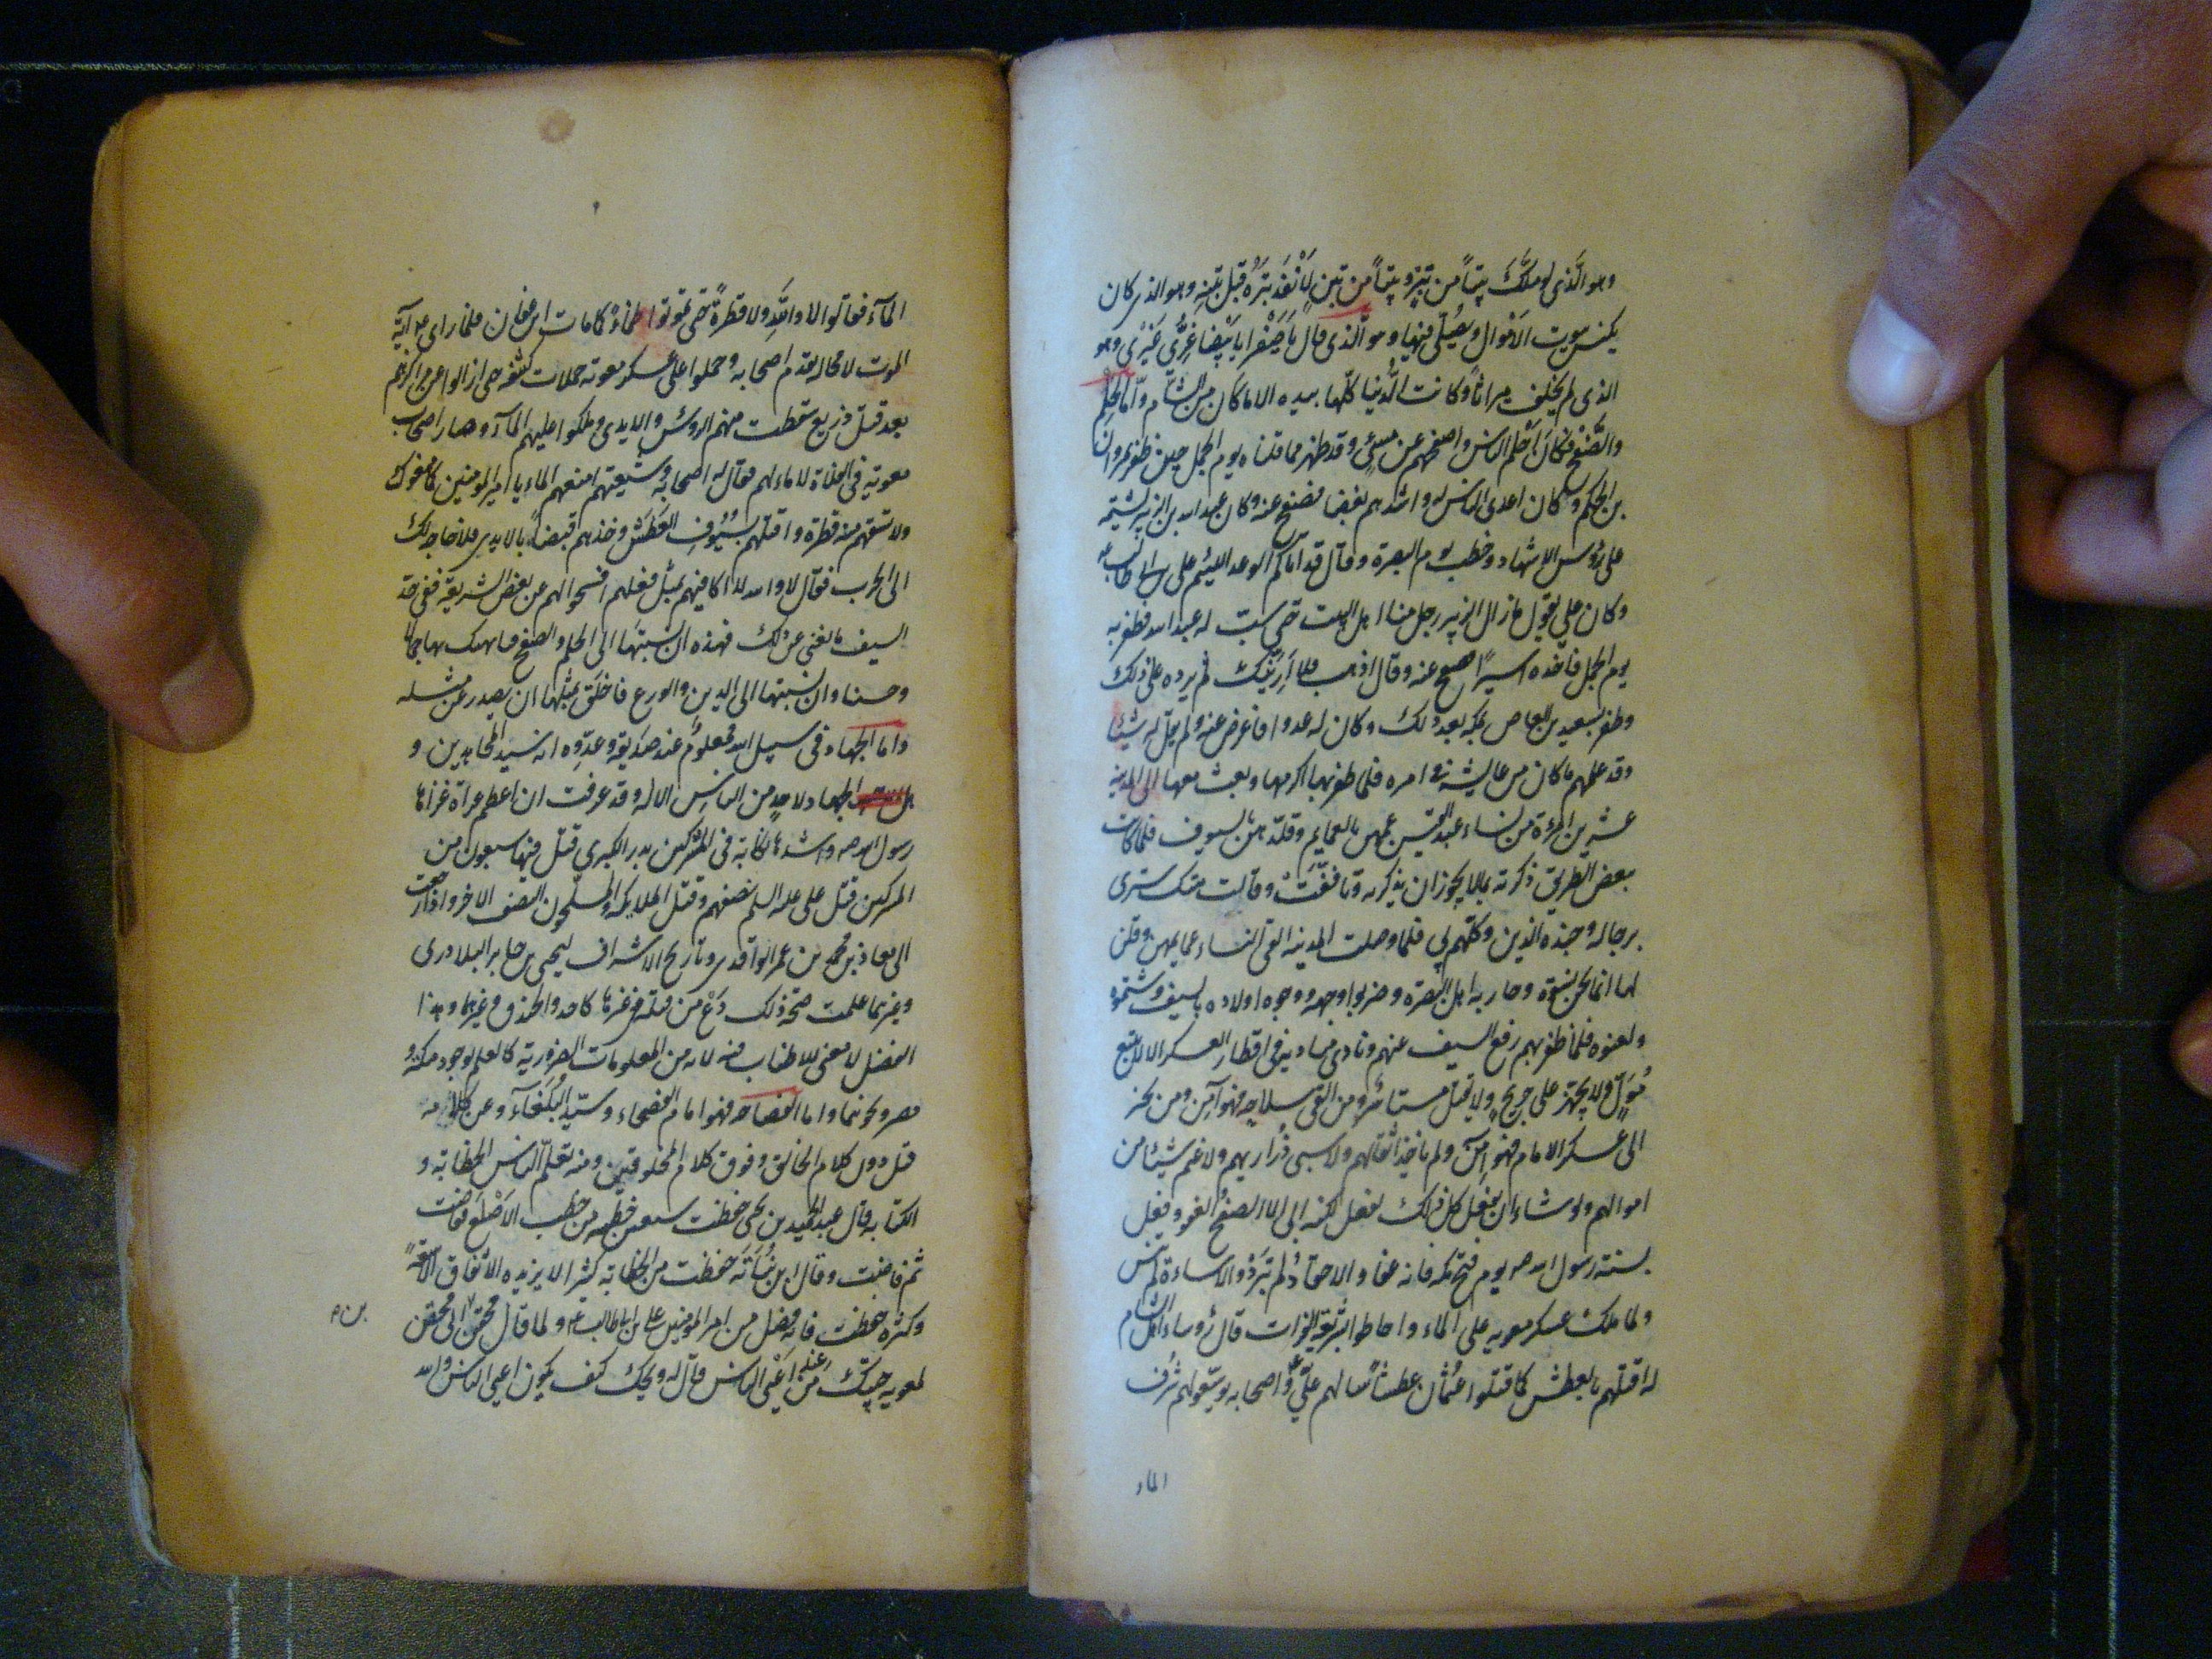 وهو الذي لو ملك بيتاً من تبر وبيتاً من تبن لأنفد تبره قبل تبنه وهو الذي كان
يكنس بيوت الأموال ويصلي فيها وهو الذي قال يا صفرا يا بيضا غري غيري وهو
الذي لم يخلف ميراثاً وكانت الدنيا كلها بيده الا ما كان من الشام واما الحلم
والصفح فكان احلم الناس واصفحهم عن مسئ وقد ظهر مما قلناه يوم الجمل حين ظفر بمروان
بن الحكم وكان اعدى الناس له واشدهم بغضا فصفح عنه وكان عبد الله بن الزبير يشتمه
على رؤس الاشهاد وخطب يوم البصرة وقال قد اتاكم الوغد اللئيم علي بن ابي طالب
وكان علي يقول ما زال الزبير رجل منا اهل البيت حتى شب له عبد الله فظفر به
يوم الجمل فاخذه اسيراً فصفح عنه وقال اذهب فلا أرينك لم يرده على ذلك
وظفر بسعيد بن العاص بمكه بعد ذلك وكان له عدوا فاعرض عنه ولم يقل له شيئا
وقد علمتم ما كان من عايشة في امره فلما ظفر بها اكرمها وبعث معها الى المدينة
عشرين امرءة من نساء عبد القيس عممهن بالعمايم وقلدهن بالسيوف فلما كانت
ببعض الطريق ذكرته بما لا يجوز ان يذكر به وتاففت وقالت هتك ستري
برجاله وجنده الذين وكلهم بي فلما وصلت المدينه القى النساء عمايمهن وقلن
لها انما نحن نسوة وحاربه اهل البصرة وضربوا وجهه ووجوه اولاده بالسيف وشتموه
ولعنوه فلما ظفر بهم رفع السيف عنهم ونادى مناديه في اقطار العسكر الا لا يتبع
مول ولا يجهز على جريح ولا يقتل مستاسر ومن القى سلاحه فهو آمن ومن تحيز
الى عسكر الامام فهو آمن ولم ياخذ اثقالهم ولا سبى ذراريهم ولا غنم شيئا من
اموالهم ولو شاء ان يفعل كل ذلك لفعل لكنه ابى الا الصفح والعفو وفعل
بسنة رسول الله صـ يوم فتح مكه فانه عفا والاحقاد لم تبرد والاساءة لم تنس
ولما ملك عسكر معويه على الماء واحاطوا بشريعة الفرات قال رؤساء اهل الشام
له اقتلهم بالعطش كما قتلوا عثمان عطشاً سالهم علي واصحابه يوسعوا لهم شرف
الماء
الماء فقالوا لا والله ولا قطرة حتى تموتوا ظماءً كما مات ابن عفان فلما راى عـ انه
الموت لا محاله تقدم اصحابه وحملوا على عسكر معويه حملات كثيفه حتى ازالوهم عن مراكزهم
بعد قتل ذريع سقطت منهم الرؤس والايدي وملكوا عليهم الماء وصار اصحاب
معويه في الفلاة لا ماء لهم فقال له اصحابه وشيعته امنعهم الماء يا امير المومنين كما منعوك
ولا تسقهم منه قطرة واقتلهم بسيوف العطش وخذهم قبضاً بالايدي فلا حاجة لك
الى الحرب فقال لا والله لا اكافيهم بمثل فعلهم افسحوا لهم عن بعض الشريعة ففي حد
السيف ما يغني عن ذلك فهذه ان نسبتها الى الحلم والصفح فناهيك بها جمالا
وحسنا وان نسبتها الى الدين والورع فاخلق بمثلها ان يصدر عن مثله
واما الجهاد في سبيل الله فمعلوم عند صديقه وعدوه انه سيد المجاهدين و
هل الجهاد لاحد من الناس الا له وقد عرفت ان اعظم غزاة غزاها
رسول الله صـ واشدها نكاية في المشركين بدر الكبرى قتل فيها سبعون من
المشركين قتل علي عليه السلم نصفهم وقتل الملايكة والمسلمون النصف الاخر واذا رجعت
الى مغازي محمد بن عمر الواقدي وتاريخ الاشراف ليحيى بن جابر البلادري
وغيرهما علمت صحة ذلك دع من قتله في غيرها كاحد والخندق وغيرهما وهذا
الفضل لا معنى للاطناب فيه لانه من المعلومات الضرورية كالعلم بوجود مكة و
مصر ونحوهما واما الفصاحه فهو امام الفصحاء وسيد البلغاء وعن كلامه
قيل دون كلام الخالق وفوق كلام المخلوقين ومنه تعلم الناس الخطابة و
الكتابه قال عبد الحميد بن يحيى حفظت سبعين خطبه من خطب الاصلع ففاضت
ثم فاضت وقال ابن نباتة حفظت من الخطابة كثيرا لا يزيده الانفاق الا سعة
وكثرة حفظت مائة فصل من امير المومنين علي بن ابي طالب عـ ولما قال محقن بن ابي محقن
لمعويه جيتك من عند اعيى الناس قال له ويحك كيف يكون اعيى الناس والله